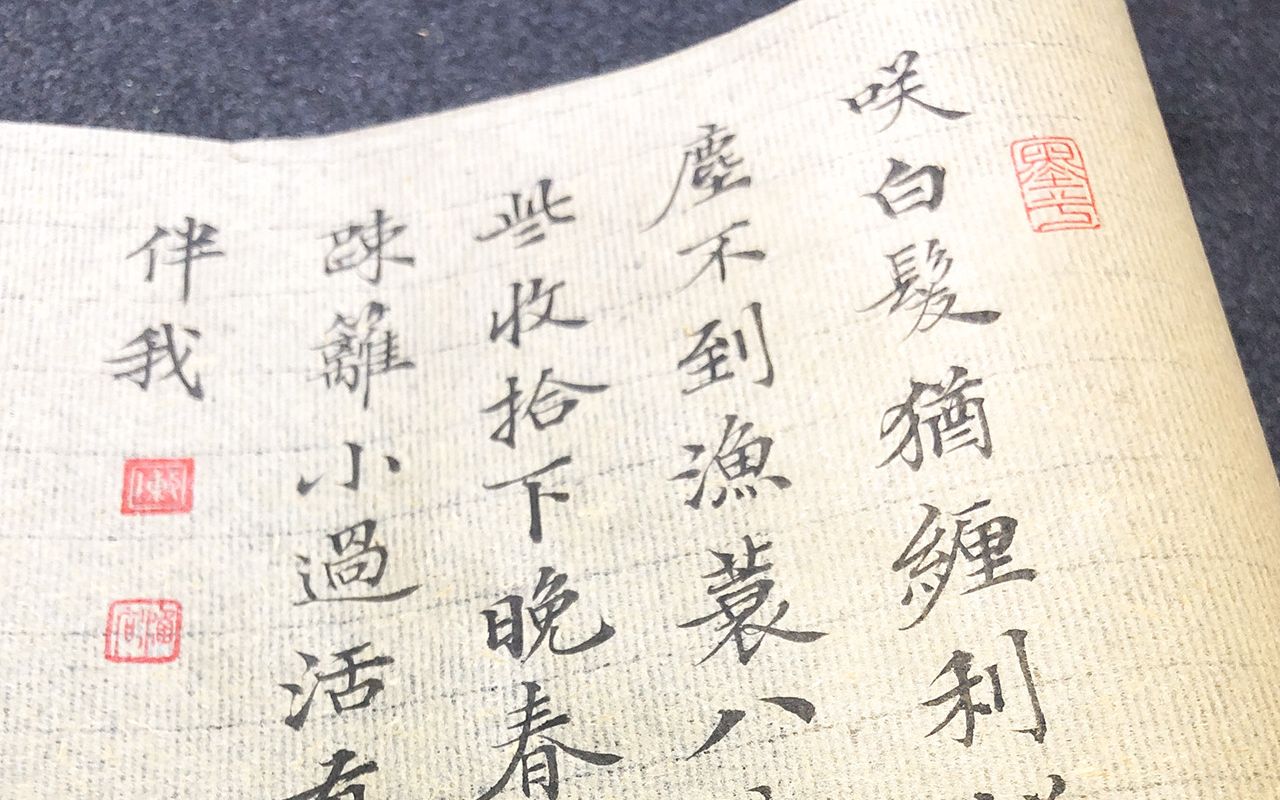 咲白髮猶纏利
塵不到漁蓑八
些收拾下晚春
疎籬小過活有
伴我